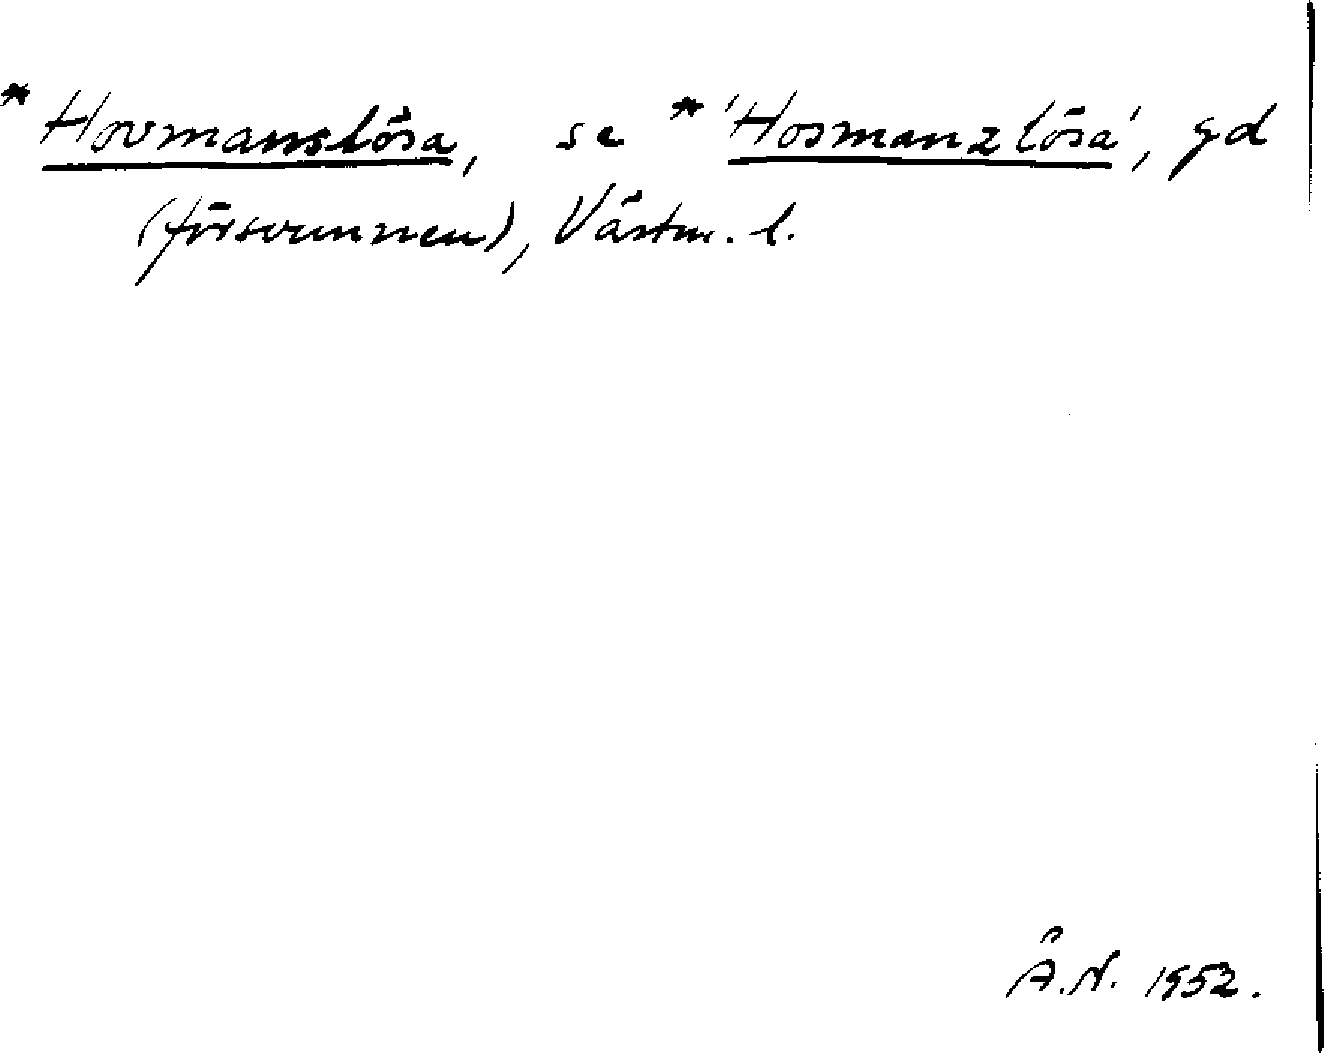 * Hovmanslösa, se * 'Hosmanzlösa', gd
(försvunnen), Västm. l.
Å.N. 1952.